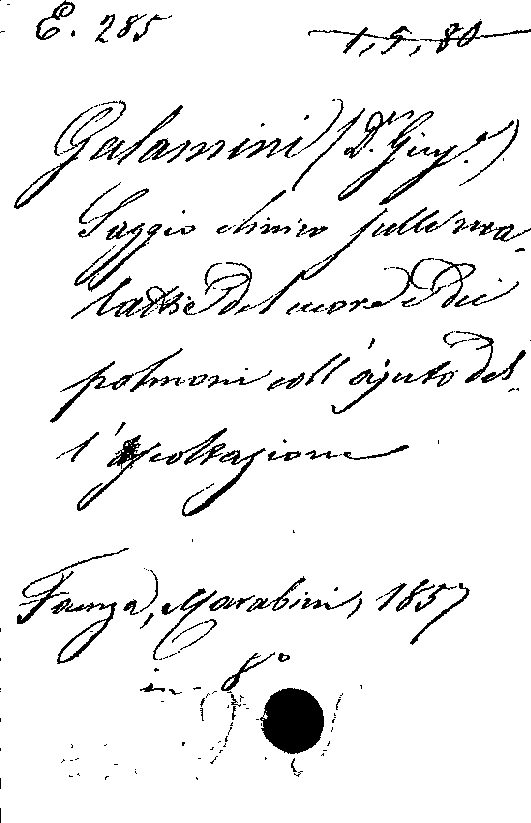 E. 285 1, 5, 80
Galamini (Dr. Giusp.e)
Saggio clinico sulle ma-
lattie del cuore e dei
polmoni coll'ajuto del-
l'ascoltazione
Faenza, Marabini, 1857
in - 8°